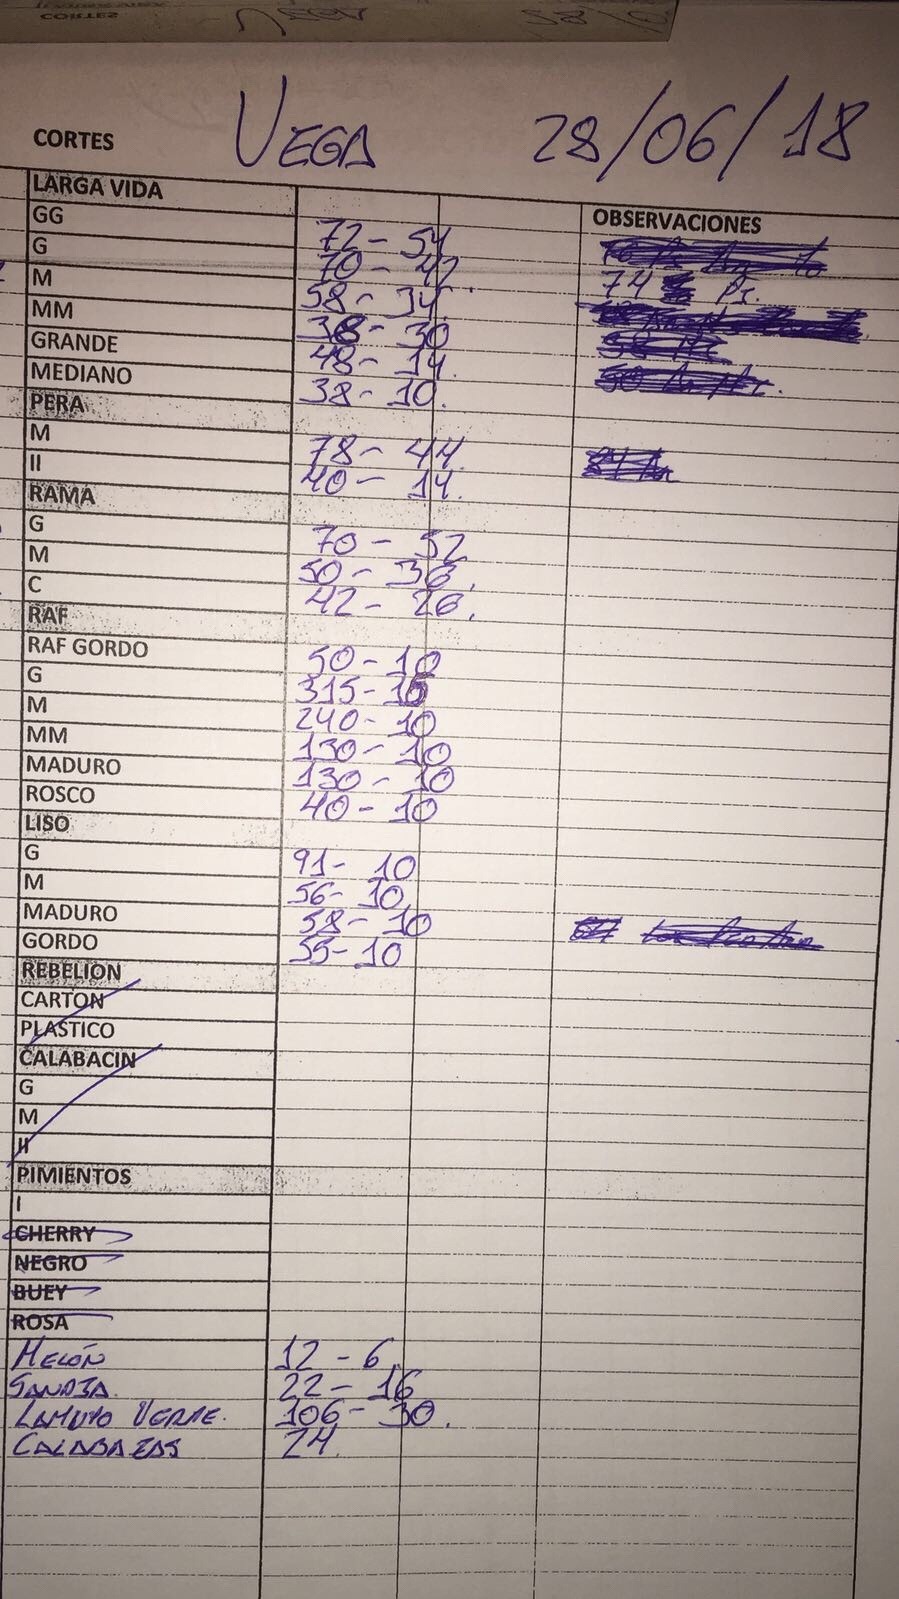 CORTES
CORTES VEGA 28/06/18
LARGA VIDA OBSERVACIONES
GG 72 - 54
G 70 - 42. 74 Pi.
M 58 - 34.
MM 38 - 30
GRANDE 48 - 14.
MEDIANO 38 - 10.
PERA
M 78 - 44.
II 40 - 14.
RAMA
G 70 - 52
M 50 - 36.
C 42 - 26.
RAF
RAF GORDO 50 - 10
G 315 - 10
M 240 - 10
MM 130 - 10
MADURO 130 - 10
ROSCO 40 - 10
LISO
G 91 - 10
M 56 - 10
MADURO 58 - 10
GORDO 55 - 10
REBELION
CARTON
PLASTICO
CALABACIN
G
M
II
PIMIENTOS
I
CHERRY
NEGRO
BUEY
ROSA
MELÓN 12 - 6
SANDIA. 22 - 16
LAMUYO VERDE. 106 - 30.
CALABAZAS 24.